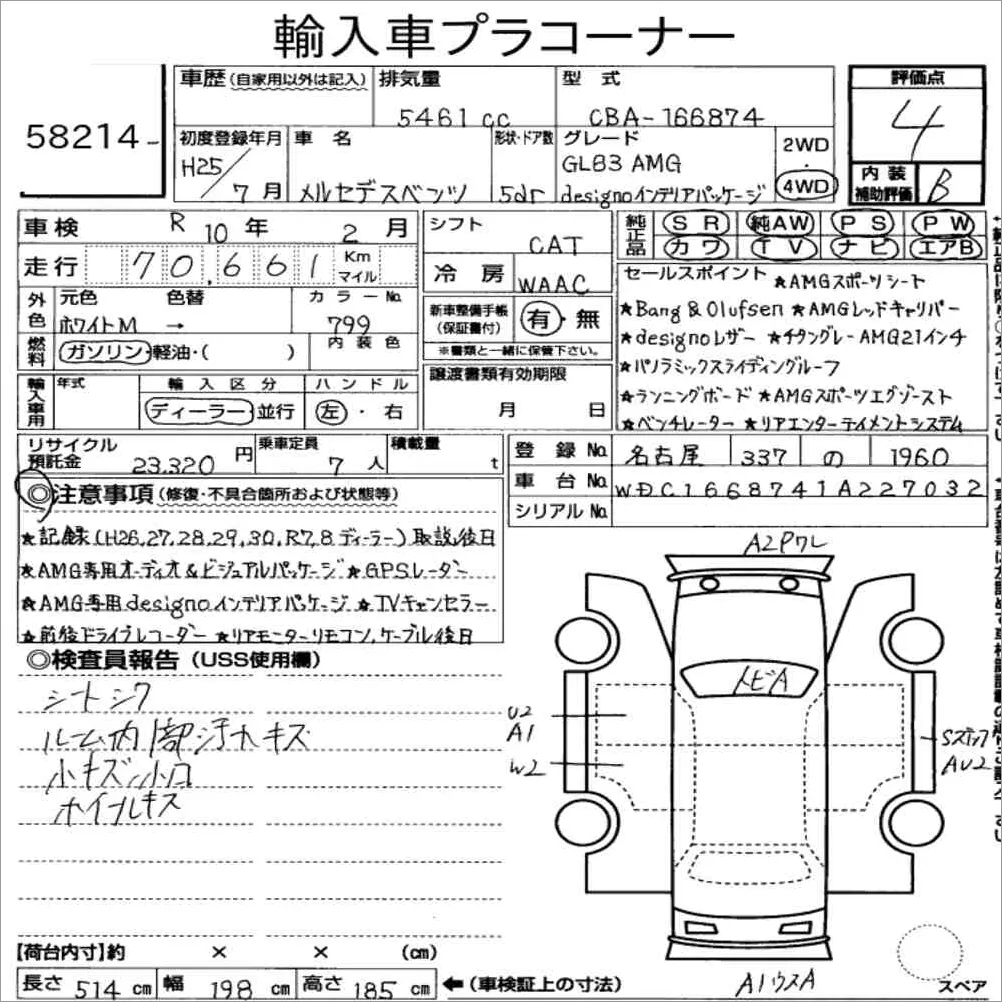 輸入車プラコーナー
58214-
車歴(自家用以外は記入) 排気量 5461 cc 型式 CBA-166874 評価点 4
初度登録年月 H25/7月 車名 メルセデスベンツ 形状・ドア数 5dr グレード GL63 AMG designoインテリアパッケージ 2WD 4WD 内装補助評価 B
車検 R 10年 2月 シフト CAT 純正品 SR 純AW PS PW
カワ TV ナビ エアB
走行 70,661 Km マイル 冷房 WAAC
外色 元色 ホワイトM 色替 → カラーNo. 799 新車整備手帳(保証書付) 有・無
燃料 ガソリン・軽油・( ) 内装色 ※書類と一緒に保管下さい。
輸入車用 年式 輸入区分 ディーラー・並行 ハンドル 左・右 譲渡書類有効期限 月 日
セールスポイント ★AMGスポーツシート
★Bang & Olufsen ★AMGレッドキャリパー
★designoレザー ★チタングレーAMG21インチ
★パノラミックスライディングルーフ
★ランニングボード ★AMGスポーツエグゾースト
★ベンチレーター ★リアエンターテイメントシステム
リサイクル預託金 23,320円 乗車定員 7人 積載量 t
登録No. 名古屋 337 の 1960
車台No. WDC1668741A227032
シリアルNo.
◎注意事項(修復・不具合箇所および状態等)
★記録(H26,27,28,29,30,R7,8ディーラー)取説後日
★AMG専用オーディオ&ビジュアルパッケージ ★GPSレーダー
★AMG専用designoインテリアパッケージ ★TVキャンセラー
★前後ドライブレコーダー ★リアモニターリモコン,ケーブル後日
◎検査員報告(USS使用欄)
シートシワ
ルーム内部汚れキズ
小キズ、小凹
ホイールキズ
A2Pワレ
トビA
U2
A1
W2
AU2
A1ウスA
スペア
【荷台内寸】約 × × (cm)
長さ 514 cm 幅 198 cm 高さ 185 cm ←(車検証上の寸法)